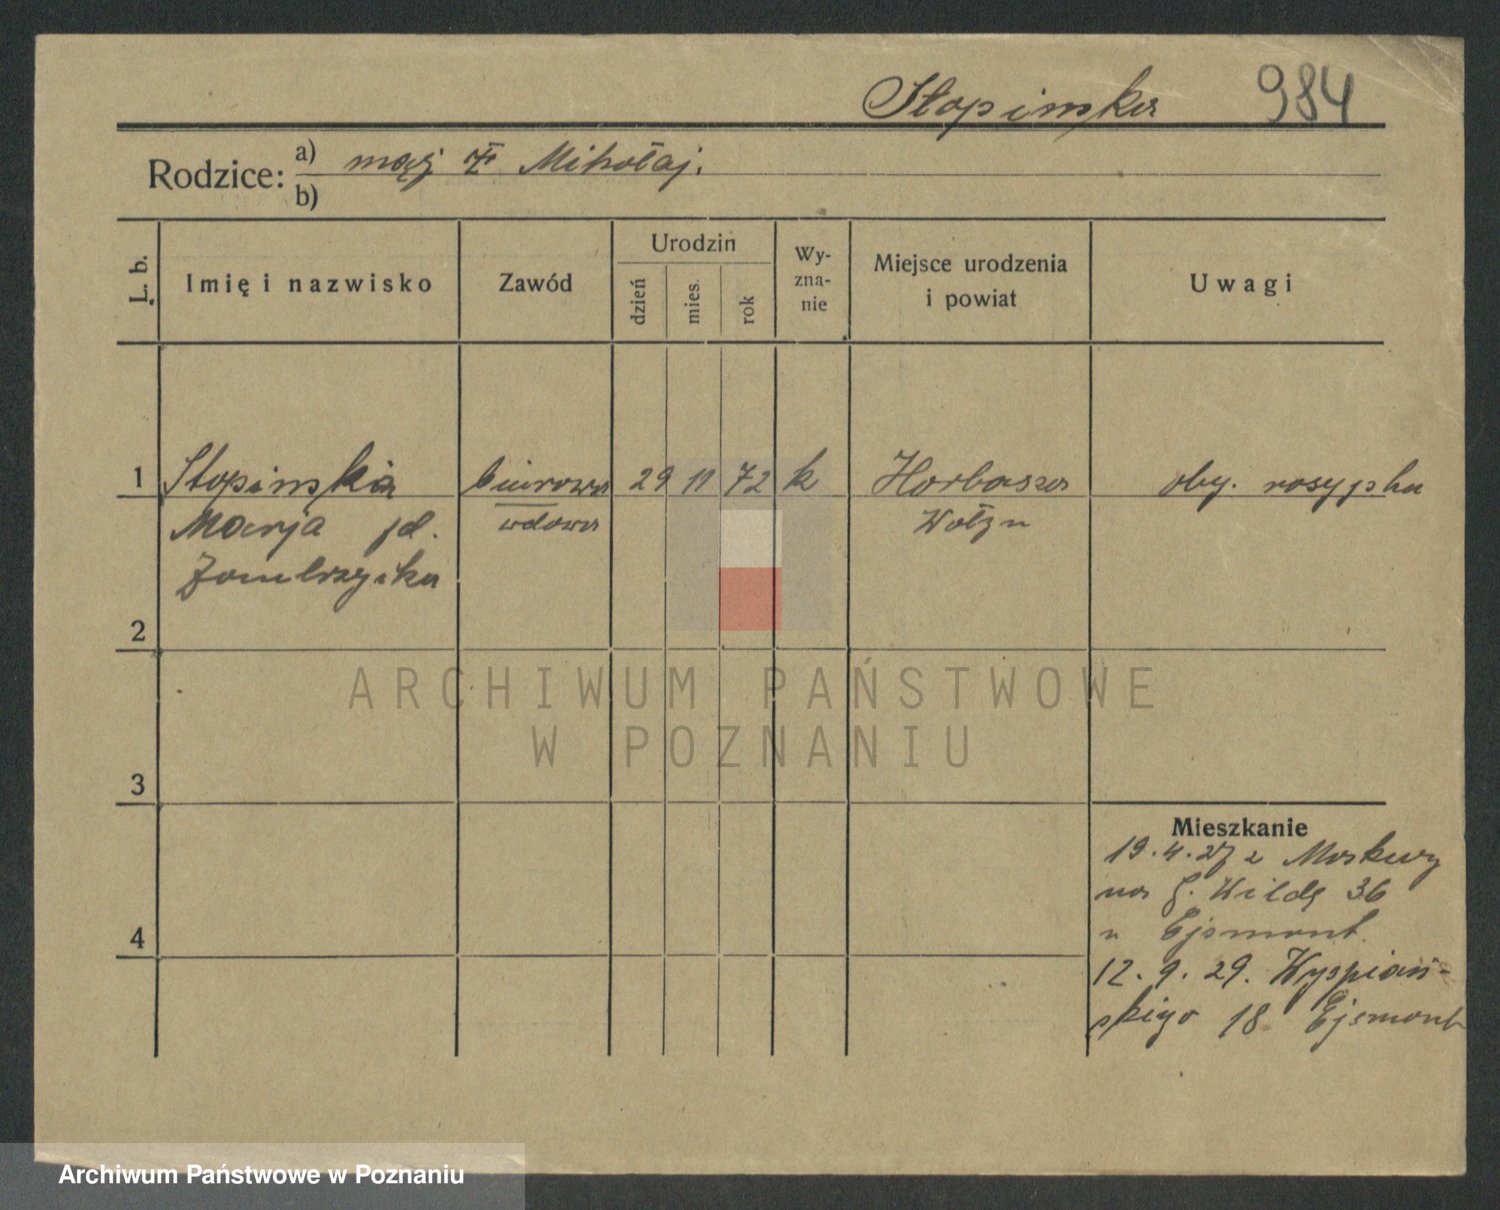 Stopinska 984
Rodzice: a) mąż Mikołaj.
b)
L. b. Imię i nazwisko Zawód Urodzin dzień mies. rok Wy-zna-nie Miejsce urodzenia i powiat Uwagi
1 Stopinska biurowa 29 11 72 k Horbasza oby. rosyjska
Marja wdowa Wołyn
2
ARCHIWUM PAŃSTWOWE
W POZNANIU
3
Mieszkanie
19.4.27 z Moskwy
na G. Wildę 36
u Ejsmont
4
12.9.29. Wyspiań-
skiego 18 Ejsmont
Archiwum Państwowe w Poznaniu